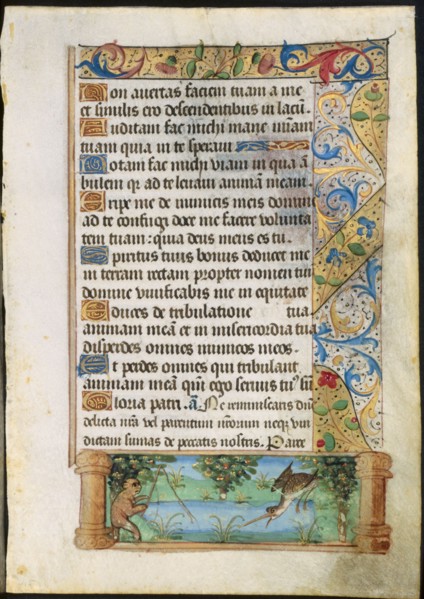 Non avertas faciem tuam a me
et similis ero descendentibus in lacū.
Auditam fac michi mane mīam
tuam quia in te speravi
Notam fac michi viam in qua ā
bulem q; ad te levavi animam meam.
Eripe me de inimicis meis domine
ad te confugi doce me facere volunta
tem tuam: quia deus meus es tu.
Spiritus tuus bonus deducet me
in terram rectam propter nomen tuū
domine vivificabis me in equitate
Educes de tribulatione tua
animam meā et in misericordia tua
disperdes omnes inimicos meos.
Et perdes omnes qui tribulant
animam meā qm̄ ego servus tu9 sū
Gloria patri. ā Ne reminiscaris dn̄e
delicta nr̄a vel parentum nr̄orum neqz vin
dictam sumas de peccatis nostris. Pater